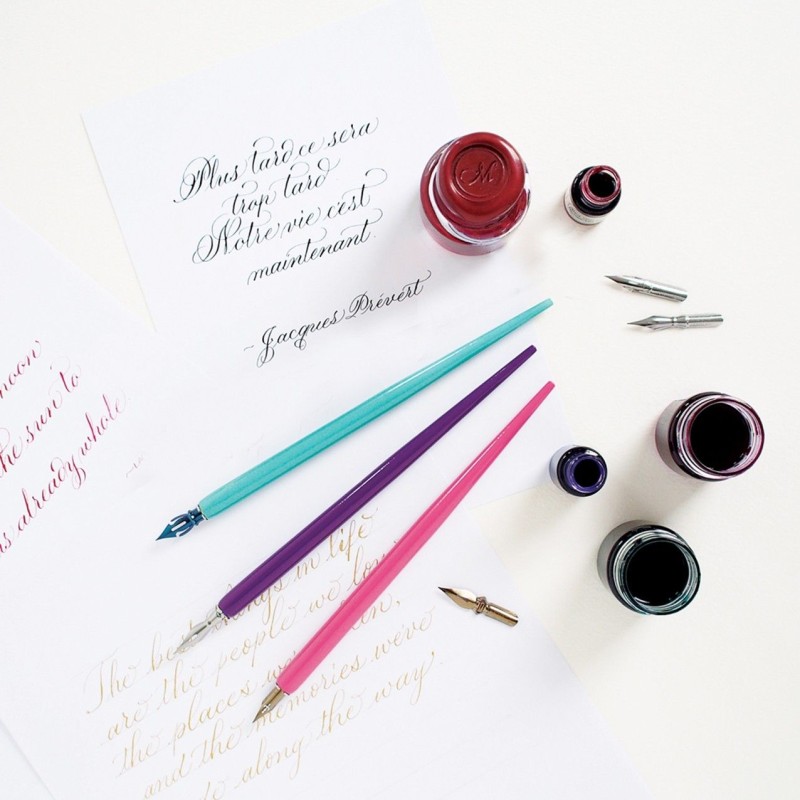 Plus tard ce sera
trop tard
Notre vie c'est
maintenant.
~ Jacques Prévert
M
moon
the sun to
already whole.
~
The best things in life
are the people we love,
the places
and the memories we've
along the way